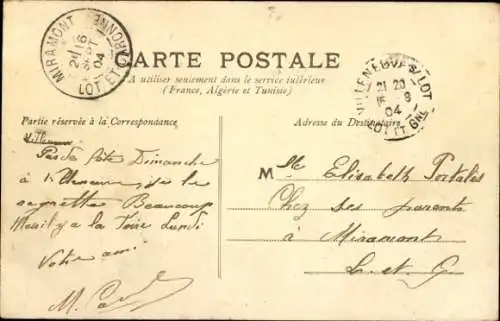 MIRAMONT
16
SEPT
04
LOT ET GARONNE
CARTE POSTALE
A utiliser seulement dans le service intérieur
(France, Algérie et Tunisie)
VILLENEUVE S/ LOT
21 20
9
04
LOT ET GNE
Partie réservée à la Correspondance
Adresse du Destinataire
Pas de fête Dimanche
à Villeneuve, je le
regrette Beaucoup
Mais il y a la Foire Lundi
Votre ami
M.
Mlle Elisabeth Portalès
Chez ses parents
à Miramont
L. et G